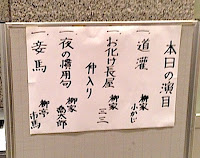 本日の演目
一 道灌
柳家 小かじ
一 お化け長屋
柳家 三三
仲入り
一 夜の慣用句
柳家 喬太郎
一 妾馬
柳亭 市馬